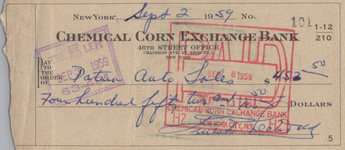 New York, Sept 2 1959 No. 101
1-12
210
CHEMICAL CORN EXCHANGE BANK
46TH STREET OFFICE
NEW YORK
PAY
TO THE
ORDER OF Patria Auto Sales $ 452 50
Four hundred fifty two and DOLLARS
1959
8 1959
CHEMICAL CORN EXCHANGE BANK
1-12 NEW YORK CITY, N.Y. 1-12
5